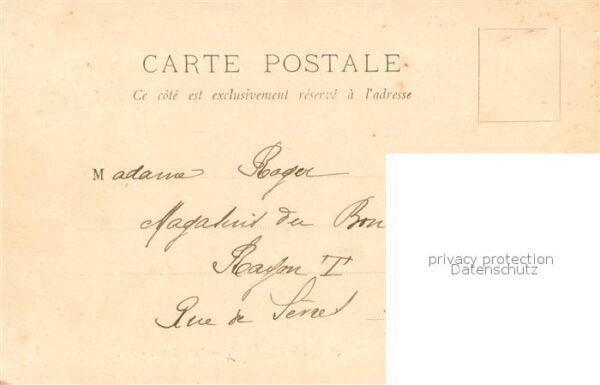 CARTE POSTALE
Ce côté est exclusivement réservé à l'adresse
Madame Roger
Magasins du Bon
Rayon T
Rue de Sèvres
privacy protection
Datenschutz